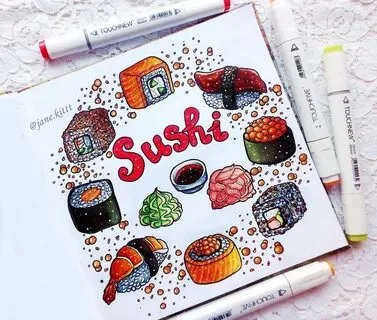 TOUCHNEW
@jane.kittt
Sushi
TOUCHFIVE
TOUCHNEW
TOUCHFIVE